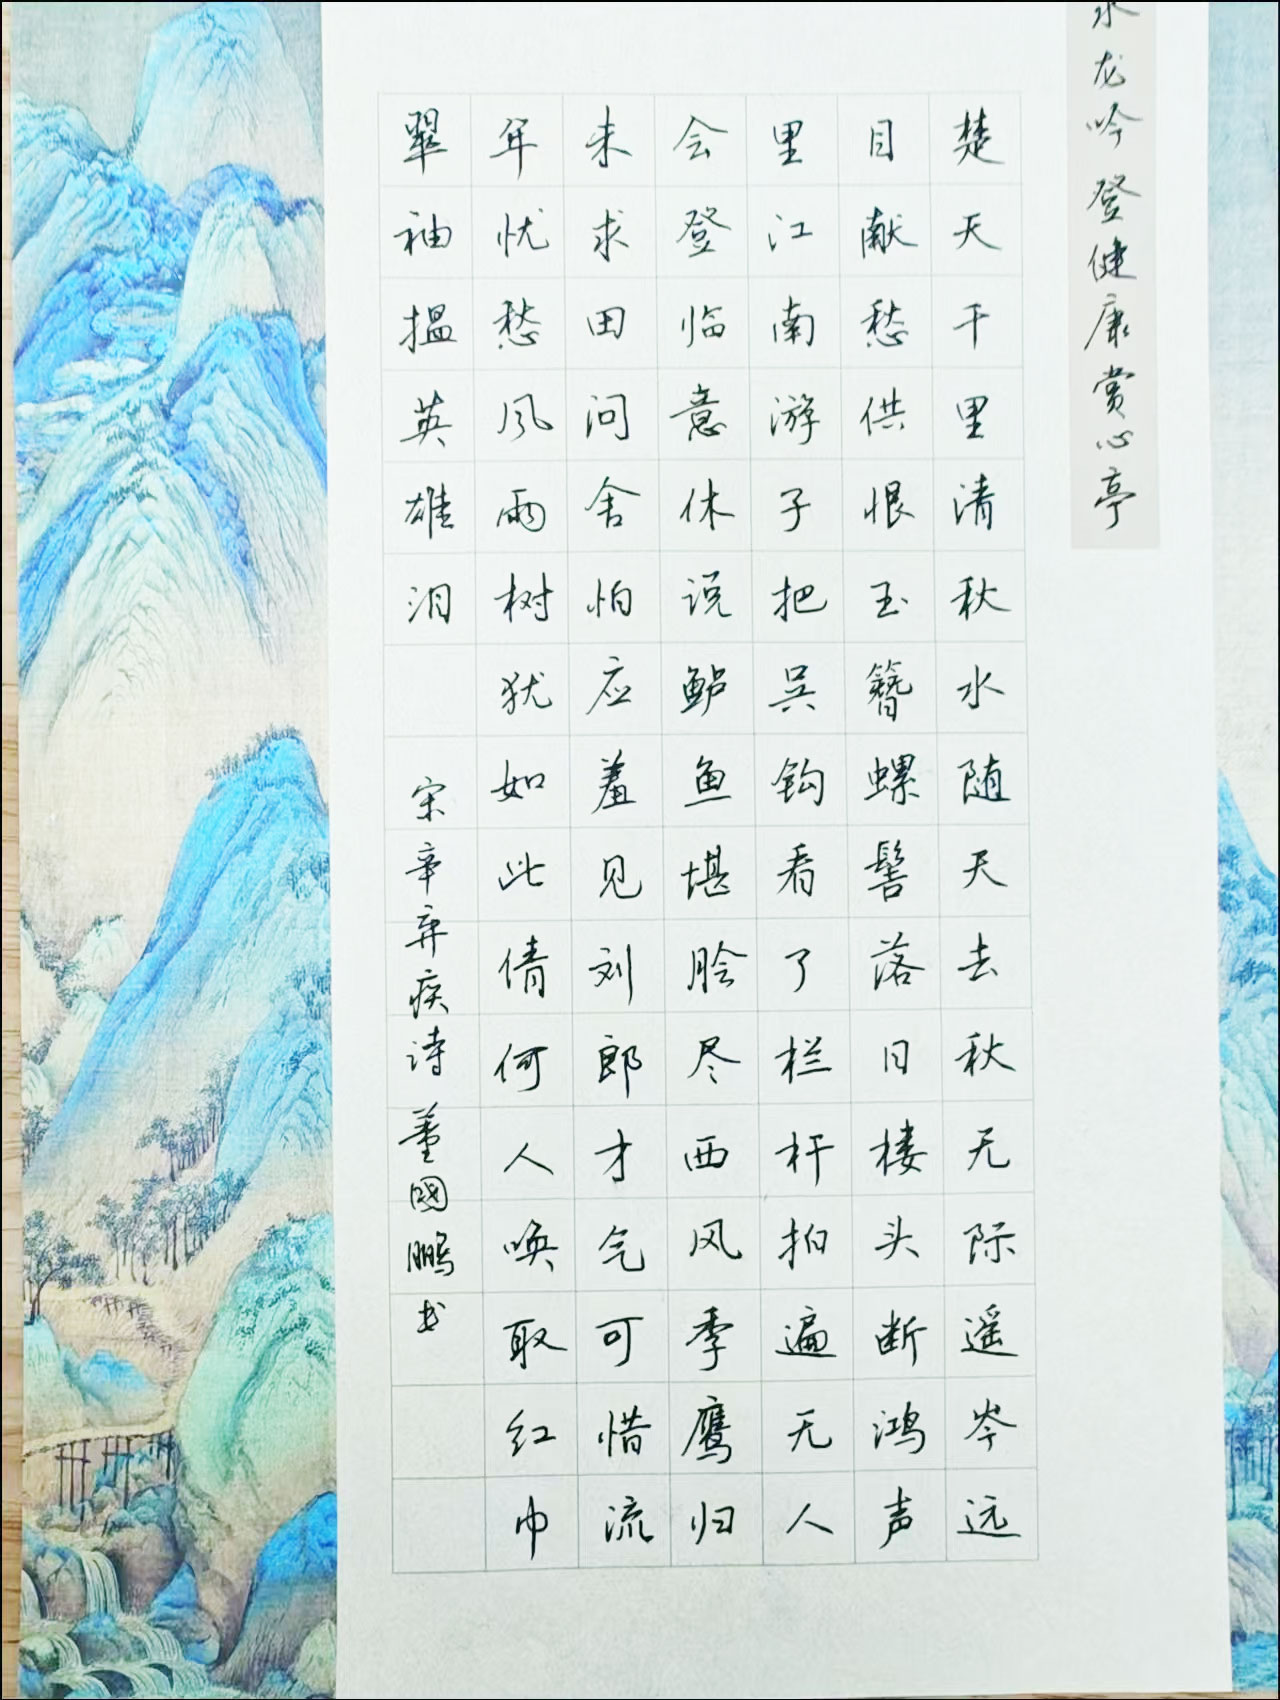 水龙吟 登健康赏心亭
楚天千里清秋水随天去秋无际遥岑远
目献愁供恨玉簪螺髻落日楼头断鸿声
里江南游子把吴钩看了栏杆拍遍无人
会登临意休说鲈鱼堪脍尽西风季鹰归
未求田问舍怕应羞见刘郎才气可惜流
年忧愁风雨树犹如此倩何人唤取红巾
翠袖揾英雄泪 宋辛弃疾诗 董國鹏书